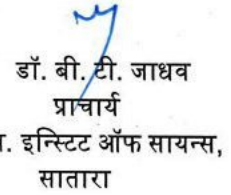 डॉ. बी. टी. जाधव
प्राचार्य
. इन्स्टिट ऑफ सायन्स,
सातारा